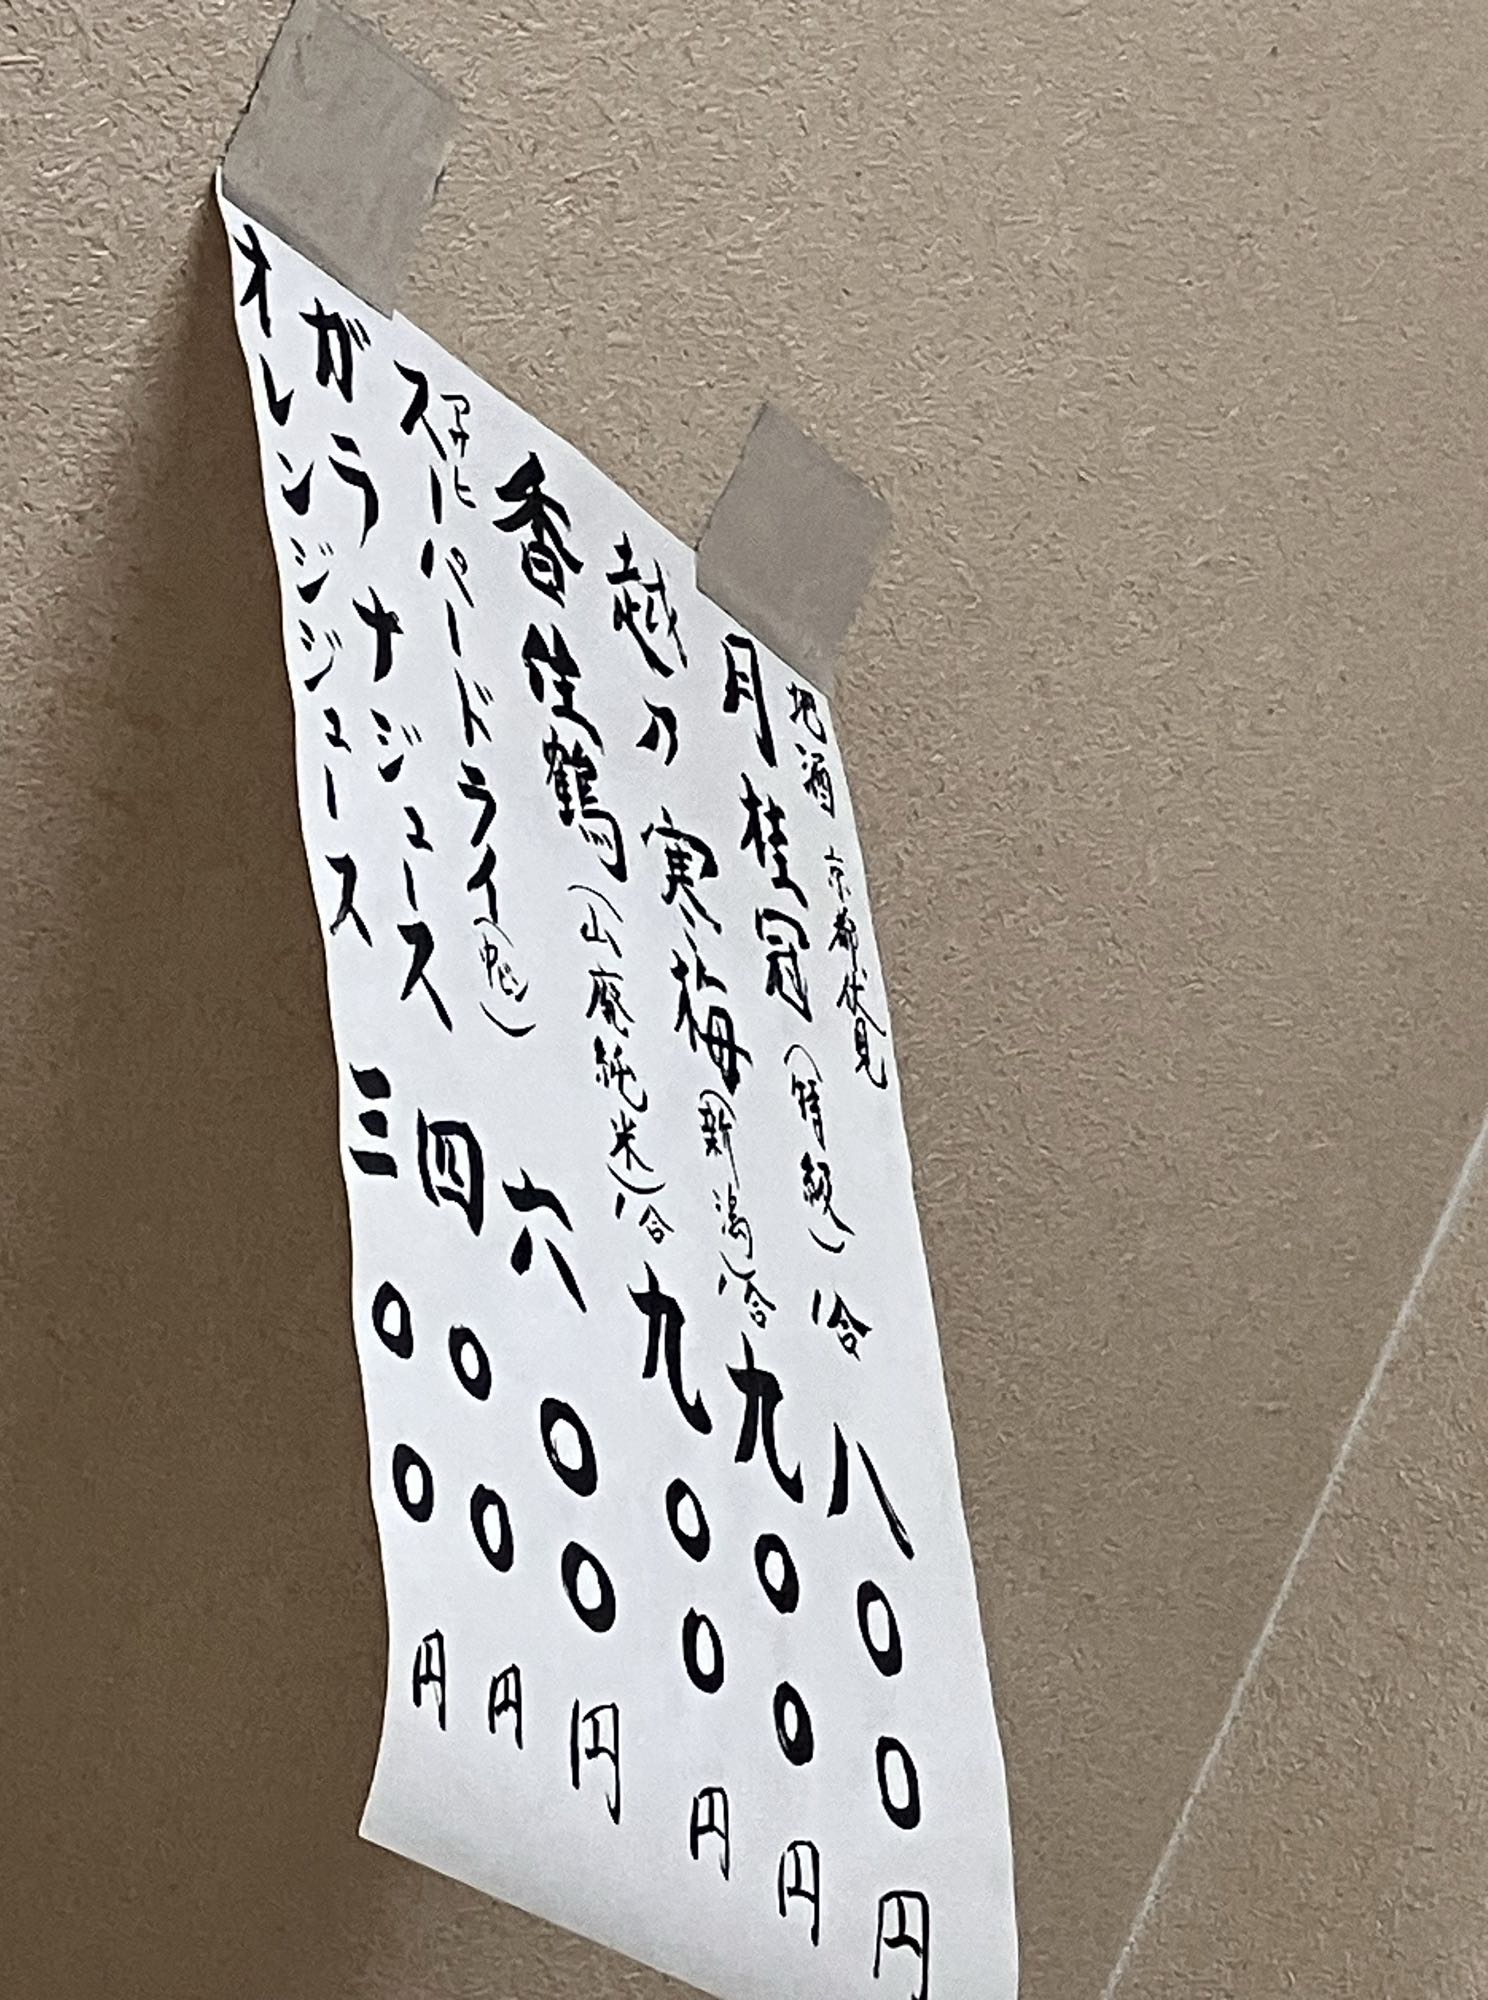 地酒 京都伏見
月桂冠(特級)1合 八〇〇円
越乃寒梅(新潟)1合 九〇〇円
香住鶴(山廃純米)1合 九〇〇円
アサヒ
スーパードライ(瓶) 六〇〇円
ガラナジュース 四〇〇円
オレンジジュース 三〇〇円